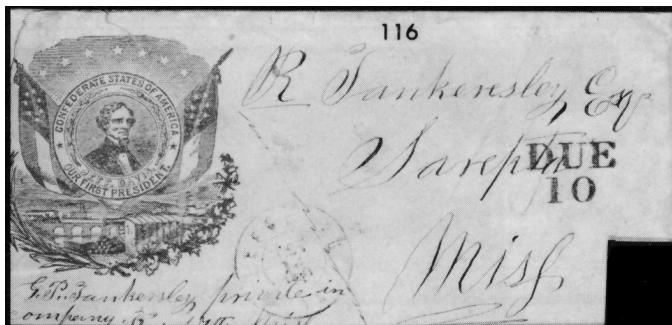 116
CONFEDERATE STATES OF AMERICA
JEFF. DAVIS
OUR FIRST PRESIDENT.
R Tankersley, Esq
Sarepta
DUE
10
Miss
G. P. Tankersley private in
ompany